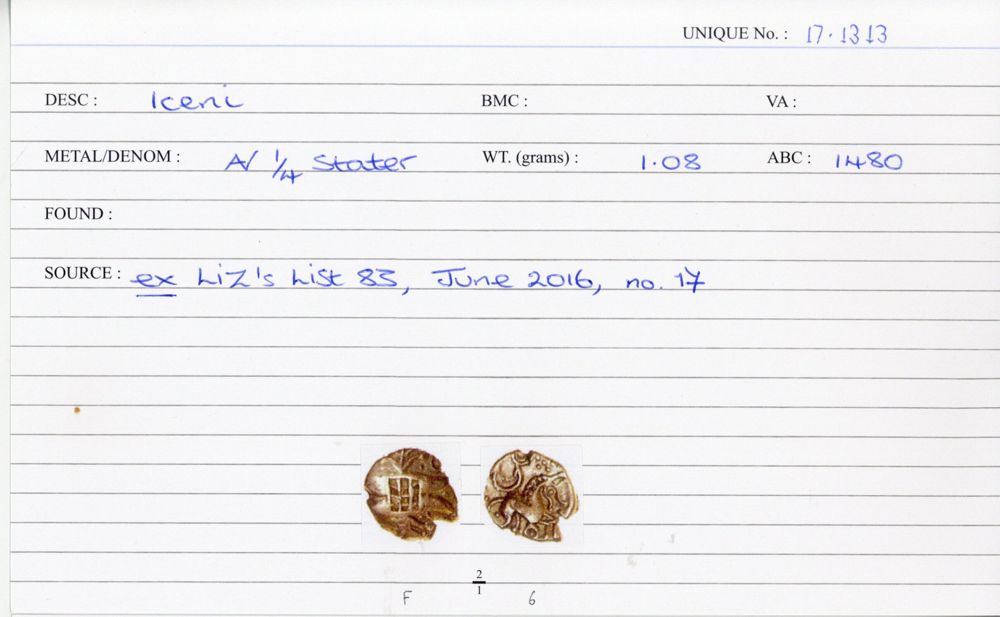 UNIQUE No. : 17.1313
DESC : Iceni BMC : VA :
METAL/DENOM : A/ 1/4 Stater WT. (grams) : 1.08 ABC : 1480
FOUND :
SOURCE : ex Liz's List 83, June 2016, no. 17
2
1
F 6